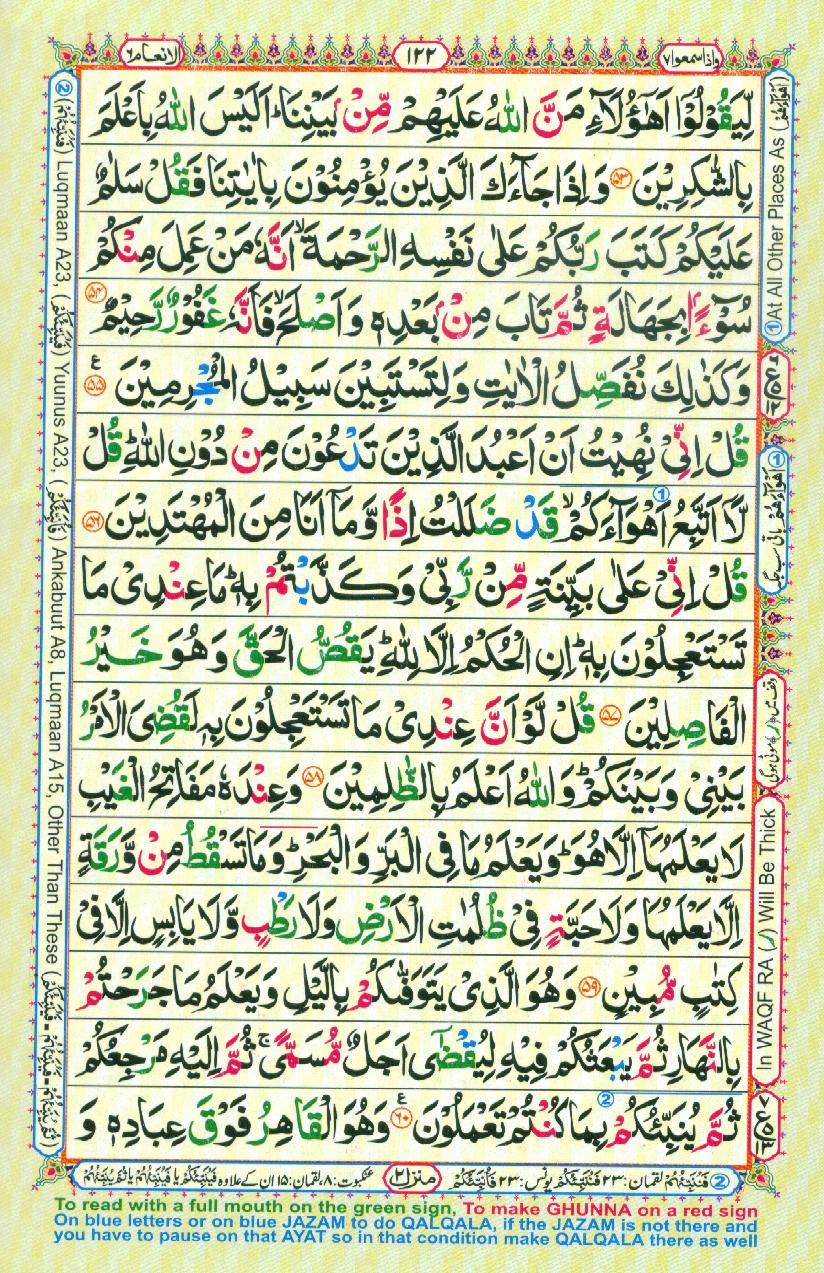 واذا سمعوا٧
١٢٢
الانعام٦
لِّيَقُوْلُوْۤا اَهٰۤؤُلَآءِ مَنَّ اللّٰهُ عَلَيْهِمْ مِّنْۢ بَيْنِنَا ؕ اَلَيْسَ اللّٰهُ بِاَعْلَمَ
بِالشّٰكِرِيْنَ ۝٥٣ وَاِذَا جَآءَكَ الَّذِيْنَ يُؤْمِنُوْنَ بِاٰيٰتِنَا فَقُلْ سَلٰمٌ
عَلَيْكُمْ كَتَبَ رَبُّكُمْ عَلٰى نَفْسِهِ الرَّحْمَةَ ۙ اَنَّهٗ مَنْ عَمِلَ مِنْكُمْ
سُوْٓءًۢا بِجَهَالَةٍ ثُمَّ تَابَ مِنْۢ بَعْدِهٖ وَاَصْلَحَ ۙ فَاَنَّهٗ غَفُوْرٌ رَّحِيْمٌ ۝٥٤
وَكَذٰلِكَ نُفَصِّلُ الْاٰيٰتِ وَلِتَسْتَبِيْنَ سَبِيْلُ الْمُجْرِمِيْنَ ۝٥٥ ع
قُلْ اِنِّيْ نُهِيْتُ اَنْ اَعْبُدَ الَّذِيْنَ تَدْعُوْنَ مِنْ دُوْنِ اللّٰهِ ؕ قُلْ
لَّاۤ اَتَّبِعُ اَهْوَآءَكُمْ ۙ قَدْ ضَلَلْتُ اِذًا وَّمَاۤ اَنَا مِنَ الْمُهْتَدِيْنَ ۝٥٦
قُلْ اِنِّيْ عَلٰى بَيِّنَةٍ مِّنْ رَّبِّيْ وَكَذَّبْتُمْ بِهٖ ؕ مَا عِنْدِيْ مَا
تَسْتَعْجِلُوْنَ بِهٖ ؕ اِنِ الْحُكْمُ اِلَّا لِلّٰهِ ؕ يَقُصُّ الْحَقَّ وَهُوَ خَيْرُ
الْفَاصِلِيْنَ ۝٥٧ قُلْ لَّوْ اَنَّ عِنْدِيْ مَا تَسْتَعْجِلُوْنَ بِهٖ لَقُضِيَ الْاَمْرُ
بَيْنِيْ وَبَيْنَكُمْ ؕ وَاللّٰهُ اَعْلَمُ بِالظّٰلِمِيْنَ ۝٥٨ وَعِنْدَهٗ مَفَاتِحُ الْغَيْبِ
لَا يَعْلَمُهَاۤ اِلَّا هُوَ ؕ وَيَعْلَمُ مَا فِي الْبَرِّ وَالْبَحْرِ ؕ وَمَا تَسْقُطُ مِنْ وَّرَقَةٍ
اِلَّا يَعْلَمُهَا وَلَا حَبَّةٍ فِيْ ظُلُمٰتِ الْاَرْضِ وَلَا رَطْبٍ وَّلَا يَابِسٍ اِلَّا فِيْ
كِتٰبٍ مُّبِيْنٍ ۝٥٩ وَهُوَ الَّذِيْ يَتَوَفّٰىكُمْ بِالَّيْلِ وَيَعْلَمُ مَا جَرَحْتُمْ
بِالنَّهَارِ ثُمَّ يَبْعَثُكُمْ فِيْهِ لِيُقْضٰۤى اَجَلٌ مُّسَمًّى ۚ ثُمَّ اِلَيْهِ مَرْجِعُكُمْ
ثُمَّ يُنَبِّئُكُمْ بِمَا كُنْتُمْ تَعْمَلُوْنَ ۝٦٠ ع وَهُوَ الْقَاهِرُ فَوْقَ عِبَادِهٖ وَ
① At All Other Places As (اَهْوَآءَهُمْ)
In WAQF RA (ر) Will Be Thick
② (فَنُنَبِّئُهُمْ) Luqmaan A23, (فَنُنَبِّئُكُمْ) Yuunus A23, (فَاُنَبِّئُكُمْ) Ankabuut A8, Luqmaan A15, Other Than These
منزل٢
To read with a full mouth on the green sign, To make GHUNNA on a red sign
On blue letters or on blue JAZAM to do QALQALA, if the JAZAM is not there and
you have to pause on that AYAT so in that condition make QALQALA there as well